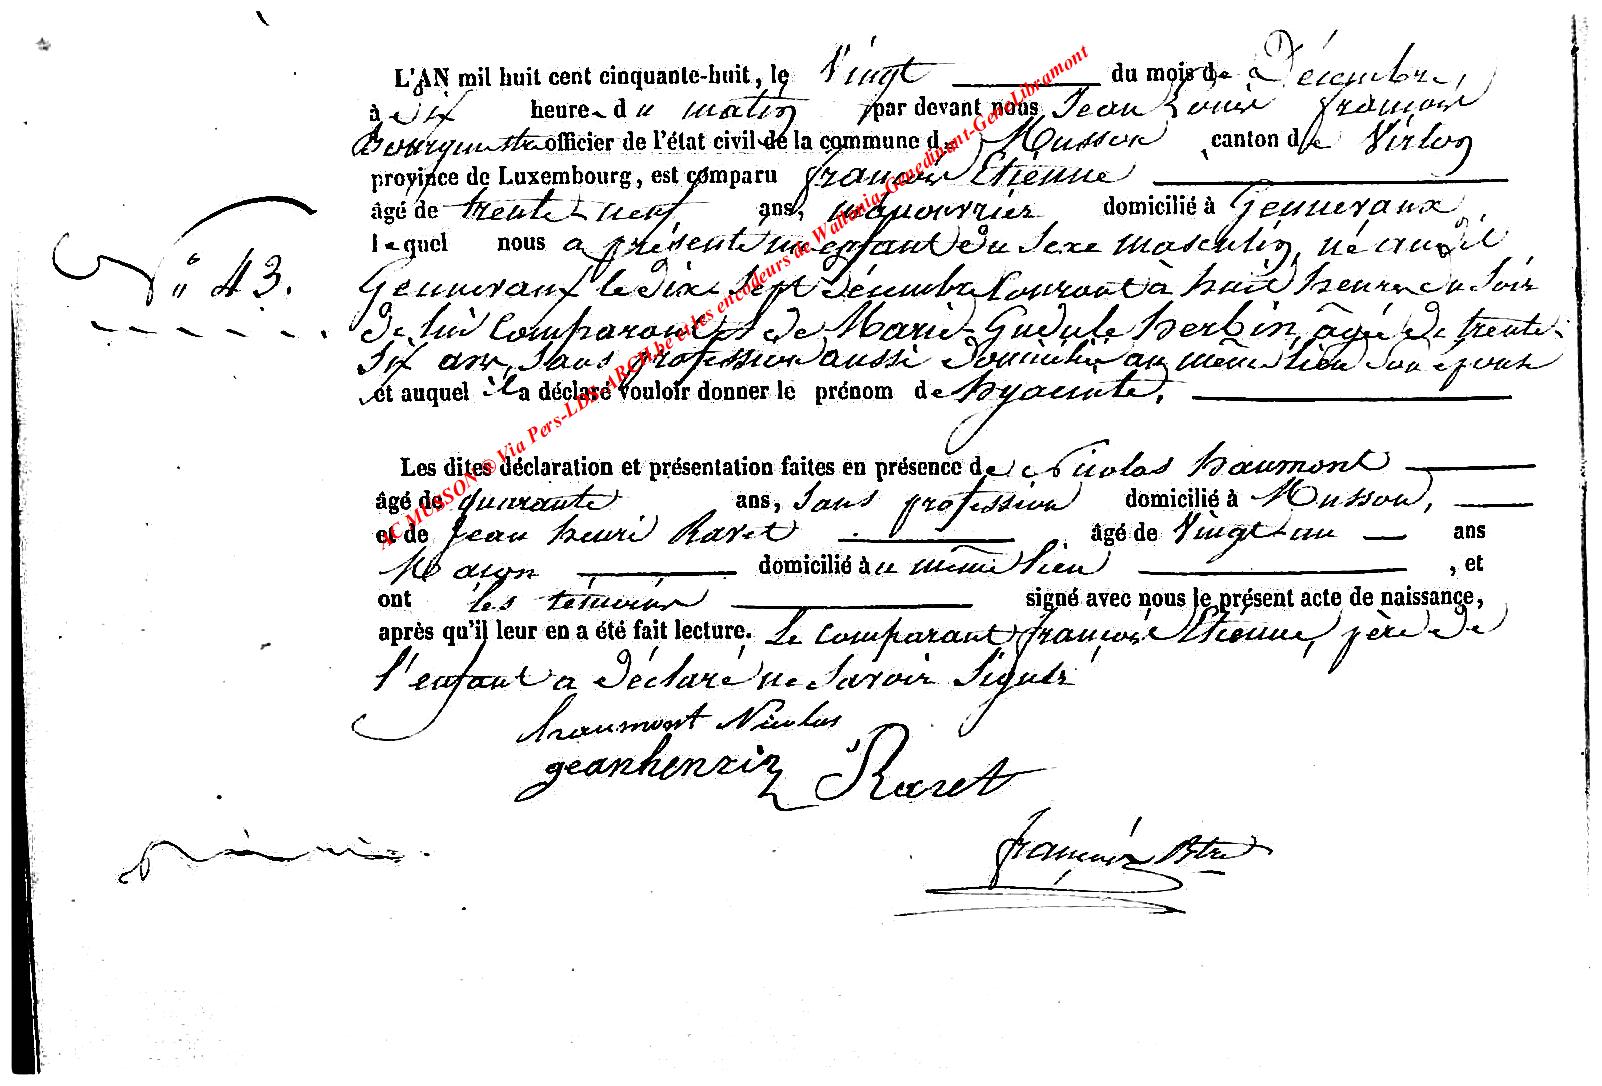 L'AN mil huit cent cinquante-huit, le Vingt du mois de Décembre,
à dix heures du matin par devant nous Jean Louis François
Bourguignon officier de l'état civil de la commune de Musson canton de Virton
province de Luxembourg, est comparu François Etienne
âgé de trente-neuf ans, manouvrier domicilié à Gennevaux,
lequel nous a présenté un enfant du sexe masculin, né audit
N° 43.
Gennevaux le dix sept décembre courant à huit heures du soir
de lui comparant et de Marie-Gudule herbin, âgée de trente-
six ans, sans profession aussi domiciliée au même lieu son épouse
et auquel il a déclaré vouloir donner le prénom de hyacinte.
Les dites déclaration et présentation faites en présence de Nicolas haumont
âgé de quarante ans, sans profession domicilié à Musson,
et de Jean henri Raret âgé de Vingt-un ans
Maçon domicilié au même lieu, et
ont les témoins signé avec nous le présent acte de naissance,
après qu'il leur en a été fait lecture. Le comparant françois Etienne, père de
l'enfant a déclaré ne savoir signer
haumont Nicolas
geanhenrin Raret
françois
AC MUSSON © Via Pers-LDS-ARCH.be et les encodeurs de Wallonia-Genedinant-Gen-Libramont